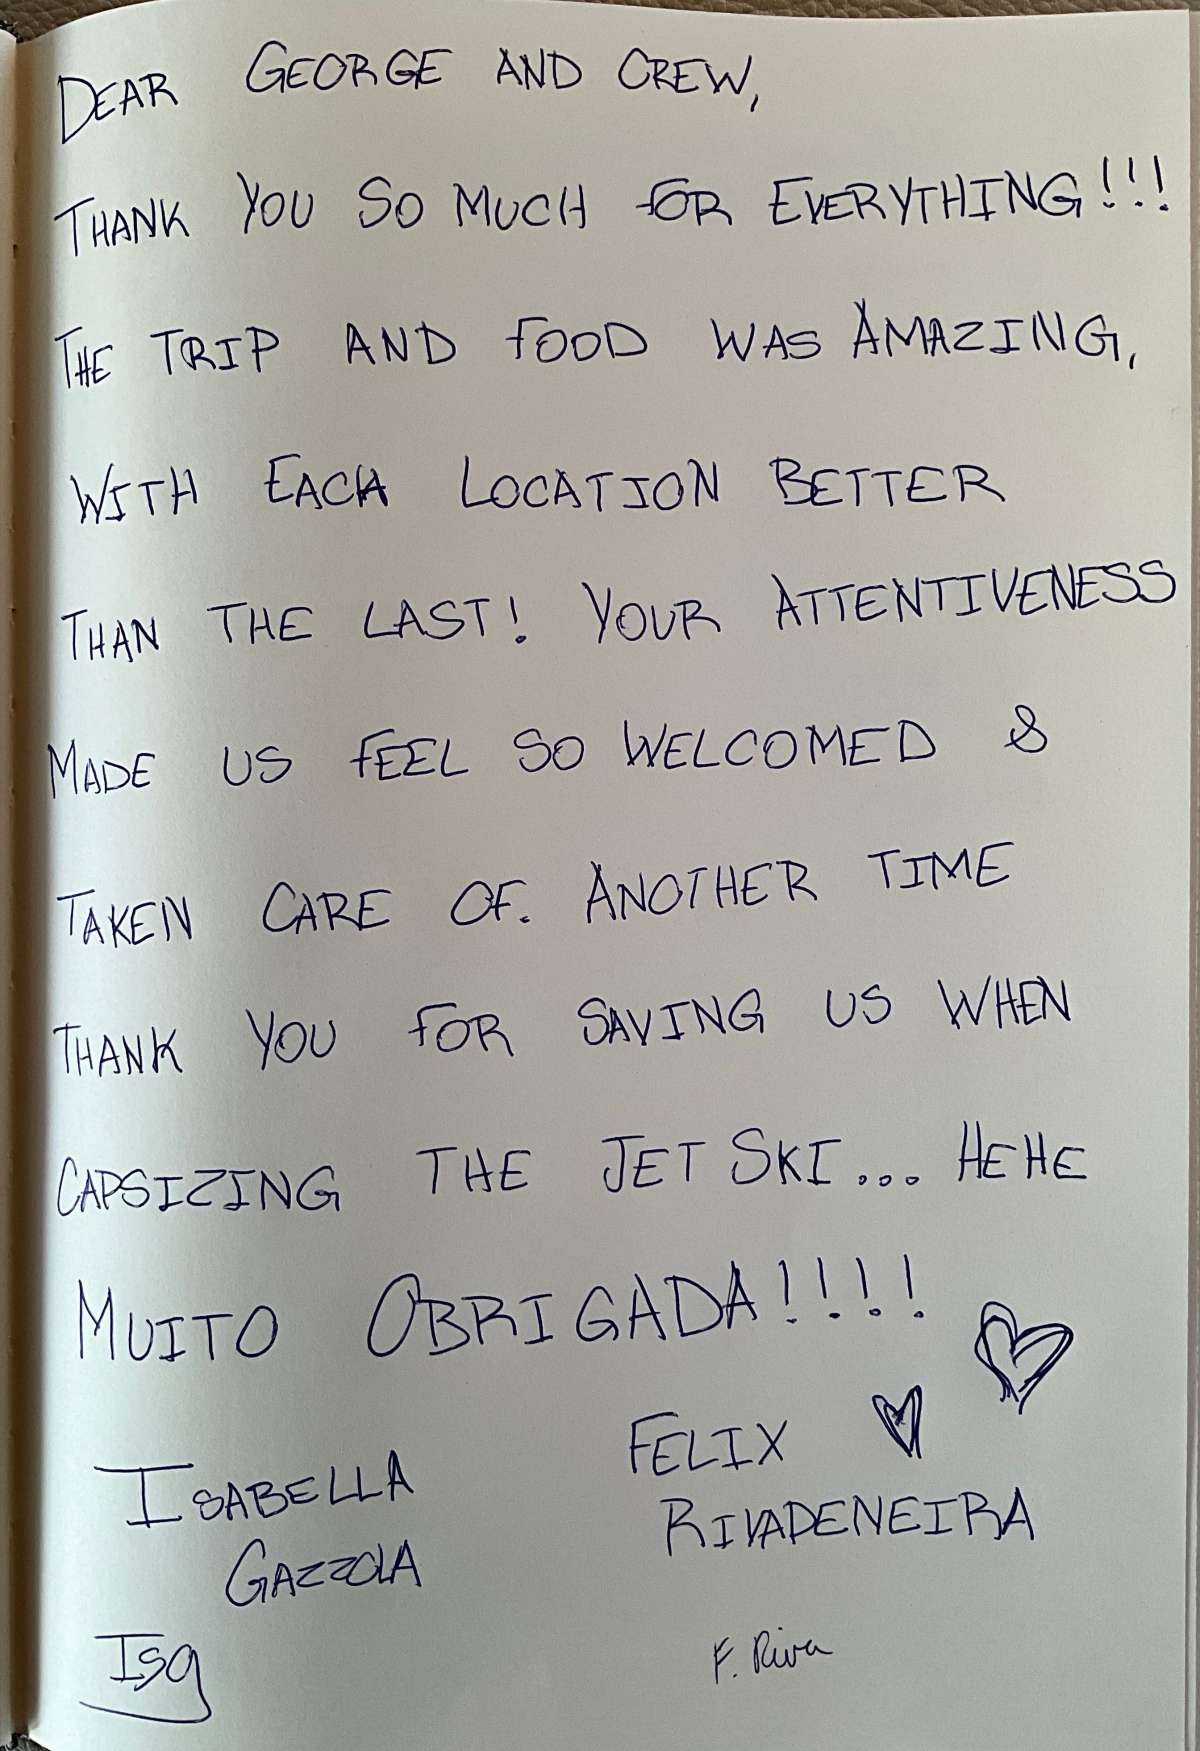 DEAR GEORGE AND CREW,
THANK YOU SO MUCH FOR EVERYTHING!!!
THE TRIP AND FOOD WAS AMAZING,
WITH EACH LOCATION BETTER
THAN THE LAST! YOUR ATTENTIVENESS
MADE US FEEL SO WELCOMED &
TAKEN CARE OF. ANOTHER TIME
THANK YOU FOR SAVING US WHEN
CAPSIZING THE JET SKI... HEHE
MUITO OBRIGADA!!!!
ISABELLA
GAZZOLA
FELIX
RIVADENEIRA
Isg
F. Riva